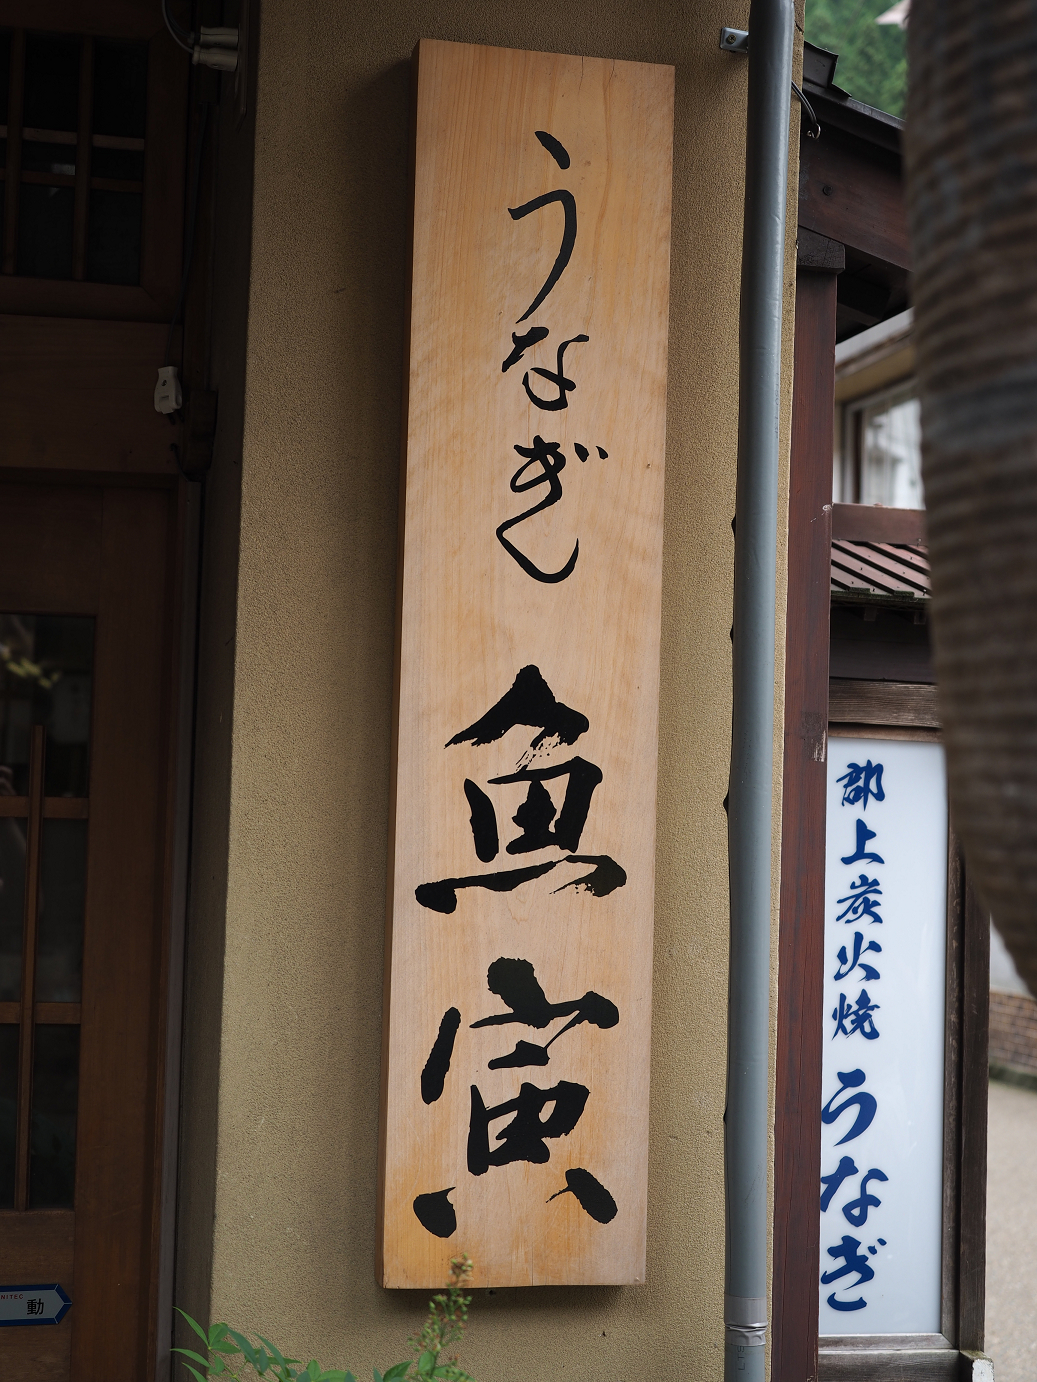 うなぎ 魚寅
郡上炭火焼 うなぎ
NITEC
動